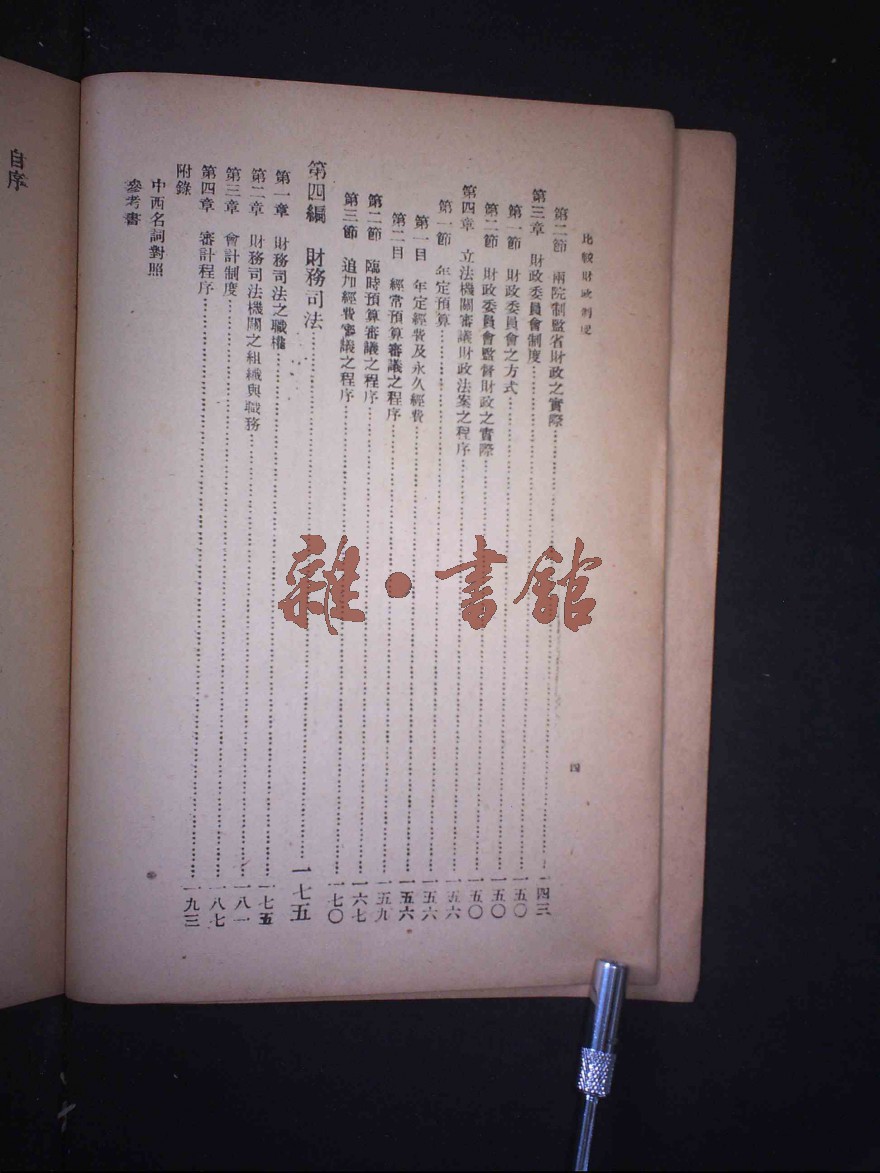 比較財政制度
四
第二節 兩院制監省財政之實際……一四三
第三章 財政委員會制度……一五〇
第一節 財政委員會之方式……一五〇
第二節 財政委員會監督財政之實際……一五〇
第四章 立法機關審議財政法案之程序……一五六
第一節 年定預算……一五六
第一目 年定經費及永久經費……一五六
第二目 經常預算審議之程序……一五九
第二節 臨時預算審議之程序……一六七
第三節 追加經費審議之程序……一七〇
第四編 財務司法……一七五
第一章 財務司法之職權……一七五
第二章 財務司法機關之組織與職務……一八一
第三章 會計制度……一八七
第四章 審計程序……一九三
附錄
中西名詞對照
參考書
自序
雜·書館